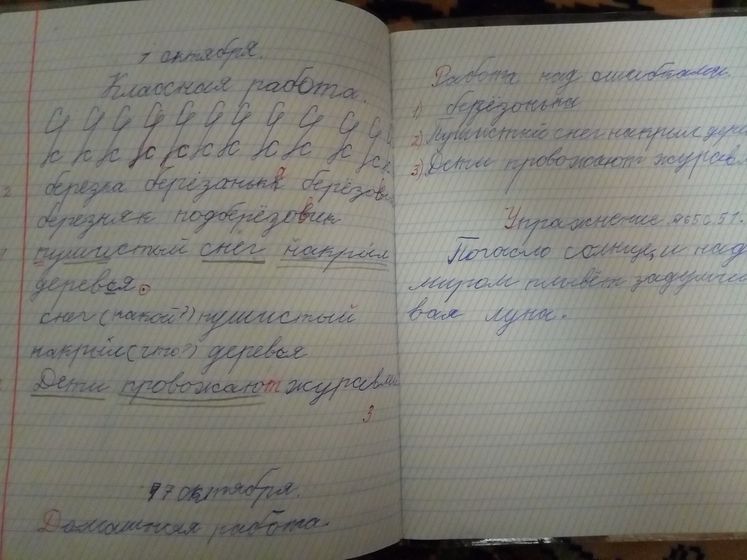 7 октября.
Классная работа.
березка берёзанька берёзов
березняк подберёзовик
пушистый снег накрыл
деревья.
снег (какой?) пушистый
накрыл (что?) деревья
Дети провожают журавлей
3
17 октября.
Домашняя работа.
Работа над ошибками.
1) берёзонька
2) Пушистый снег накрыл дере
3) Дети провожают журавл
Упражнение №65 с. 51.
Погасло солнце, и над
миром плывёт задумчи
вая луна.